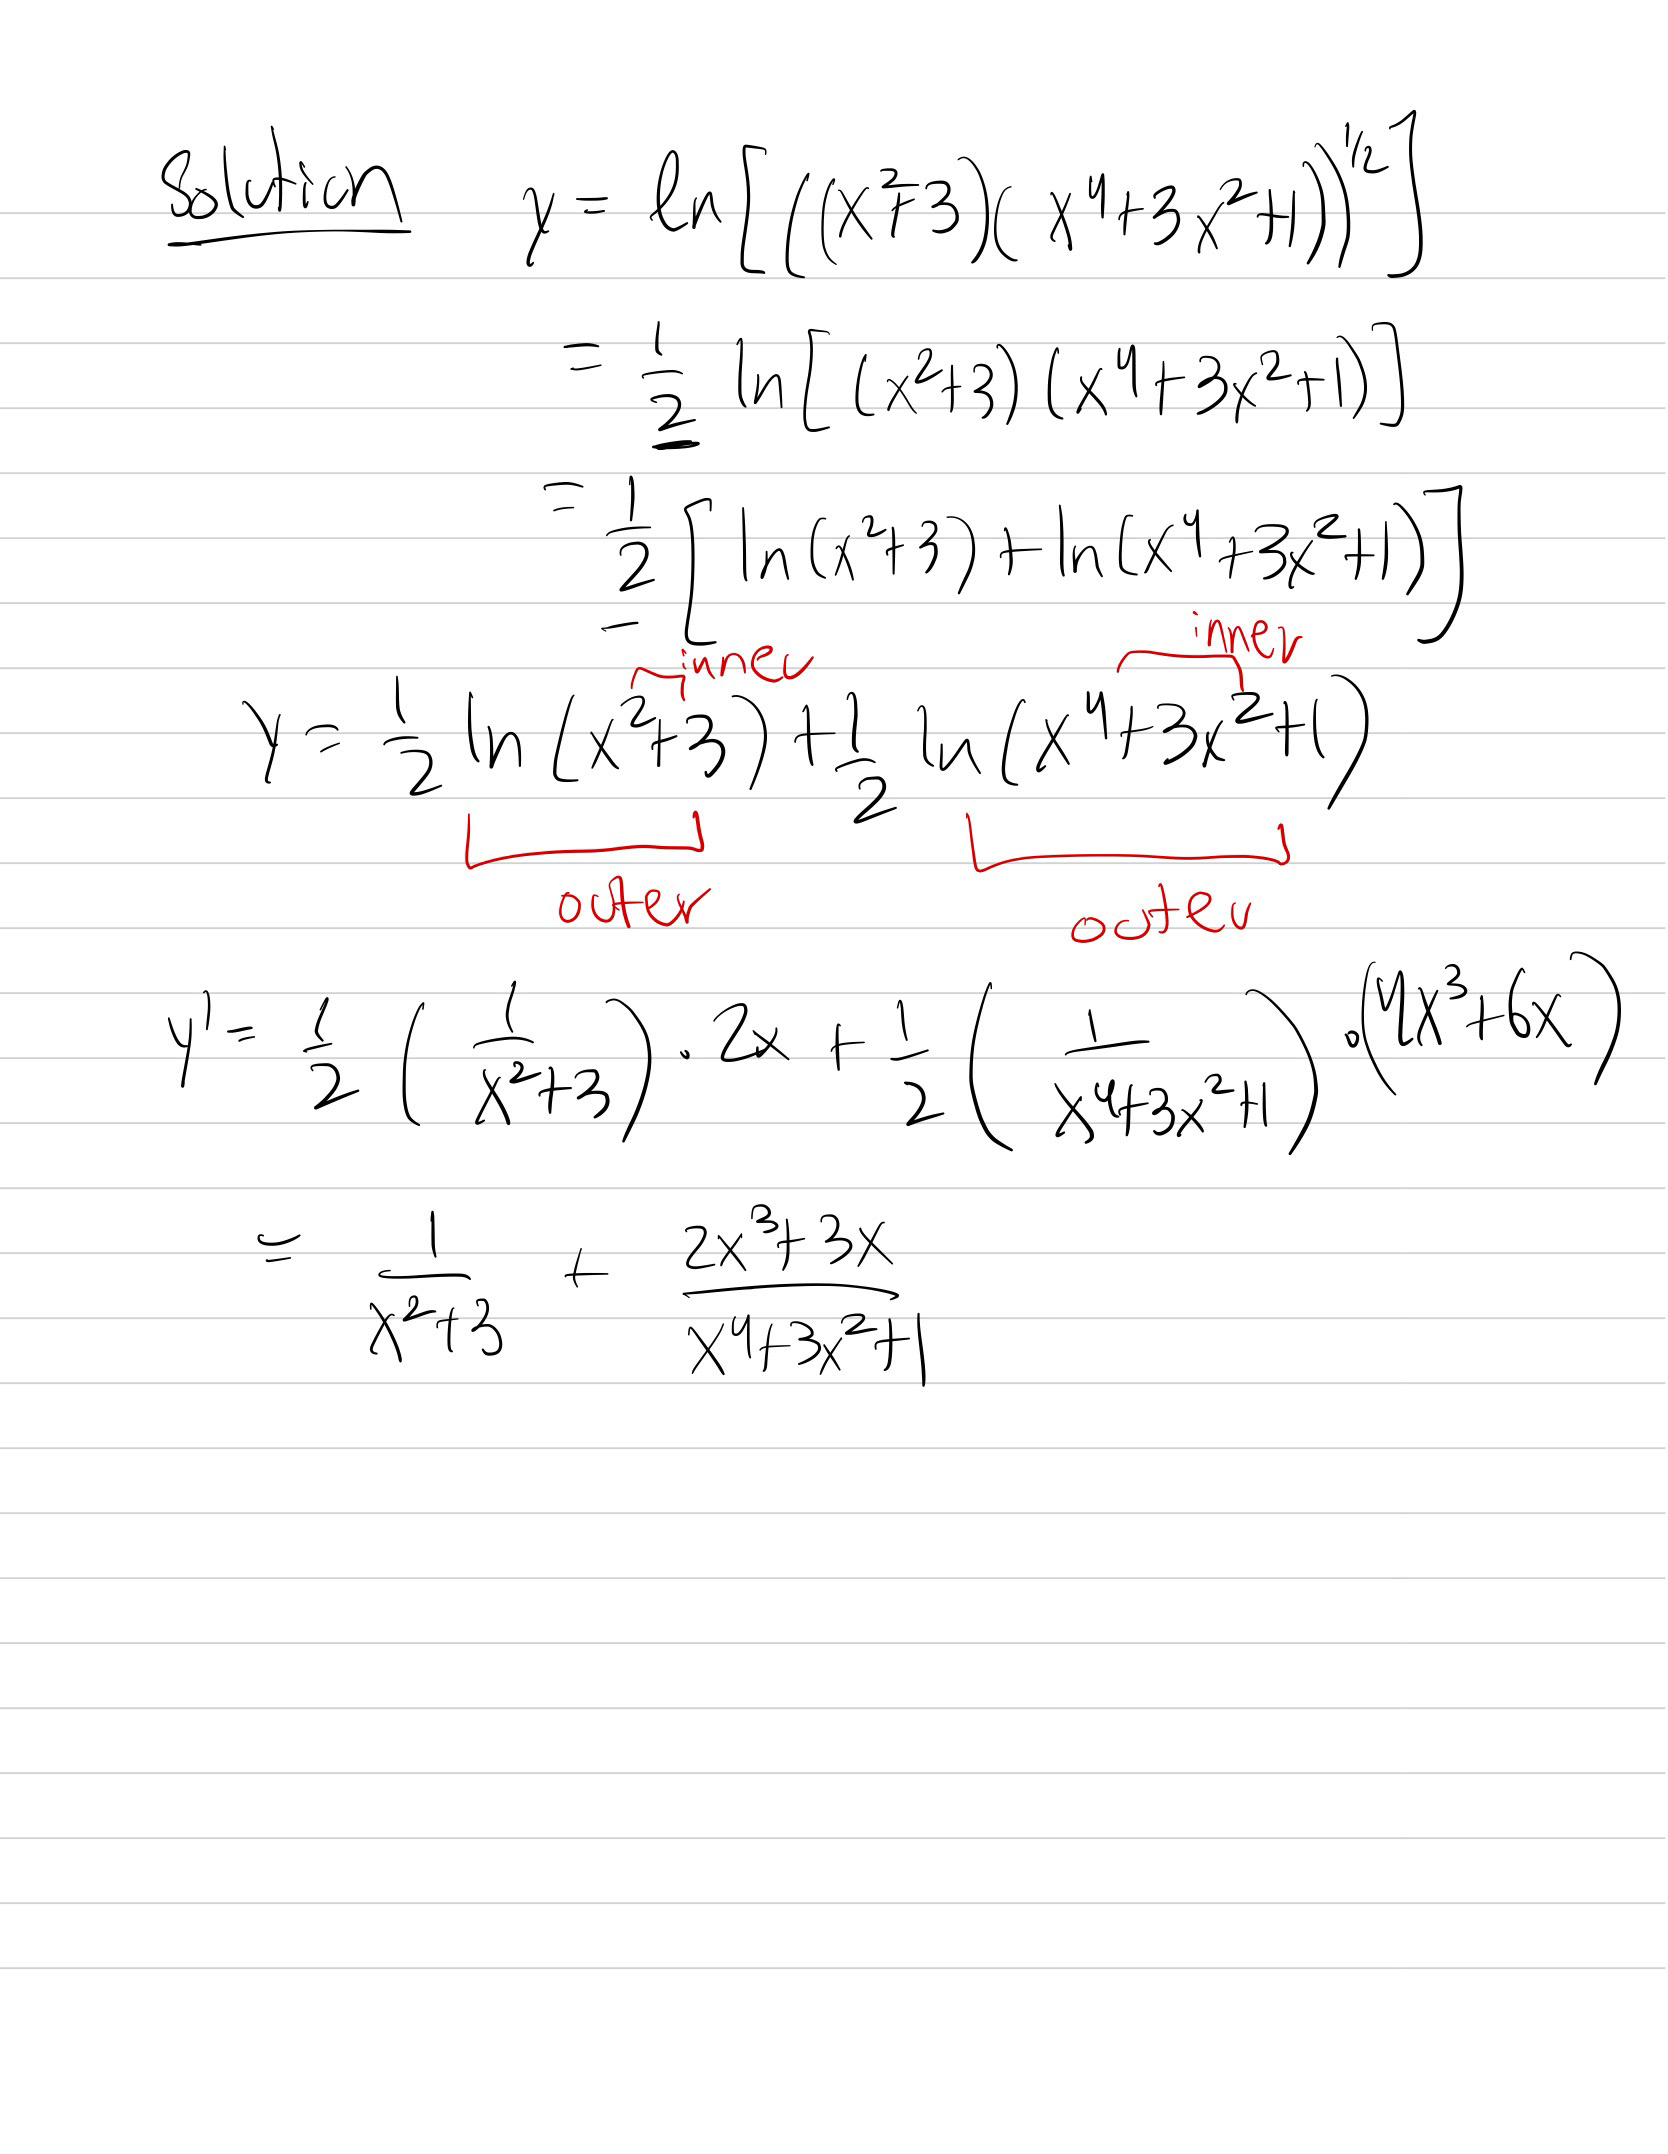 Solution y = ln[((x²+3)(x⁴+3x²+1))^{1/2}]
= 1/2 ln[(x²+3)(x⁴+3x²+1)]
= 1/2 [ln(x²+3) + ln(x⁴+3x²+1)]
inner inner
y = 1/2 ln(x²+3) + 1/2 ln(x⁴+3x²+1)
outer outer
y' = 1/2 (1/(x²+3)) · 2x + 1/2 (1/(x⁴+3x²+1)) · (4x³+6x)
= 1/(x²+3) + (2x³+3x)/(x⁴+3x²+1)